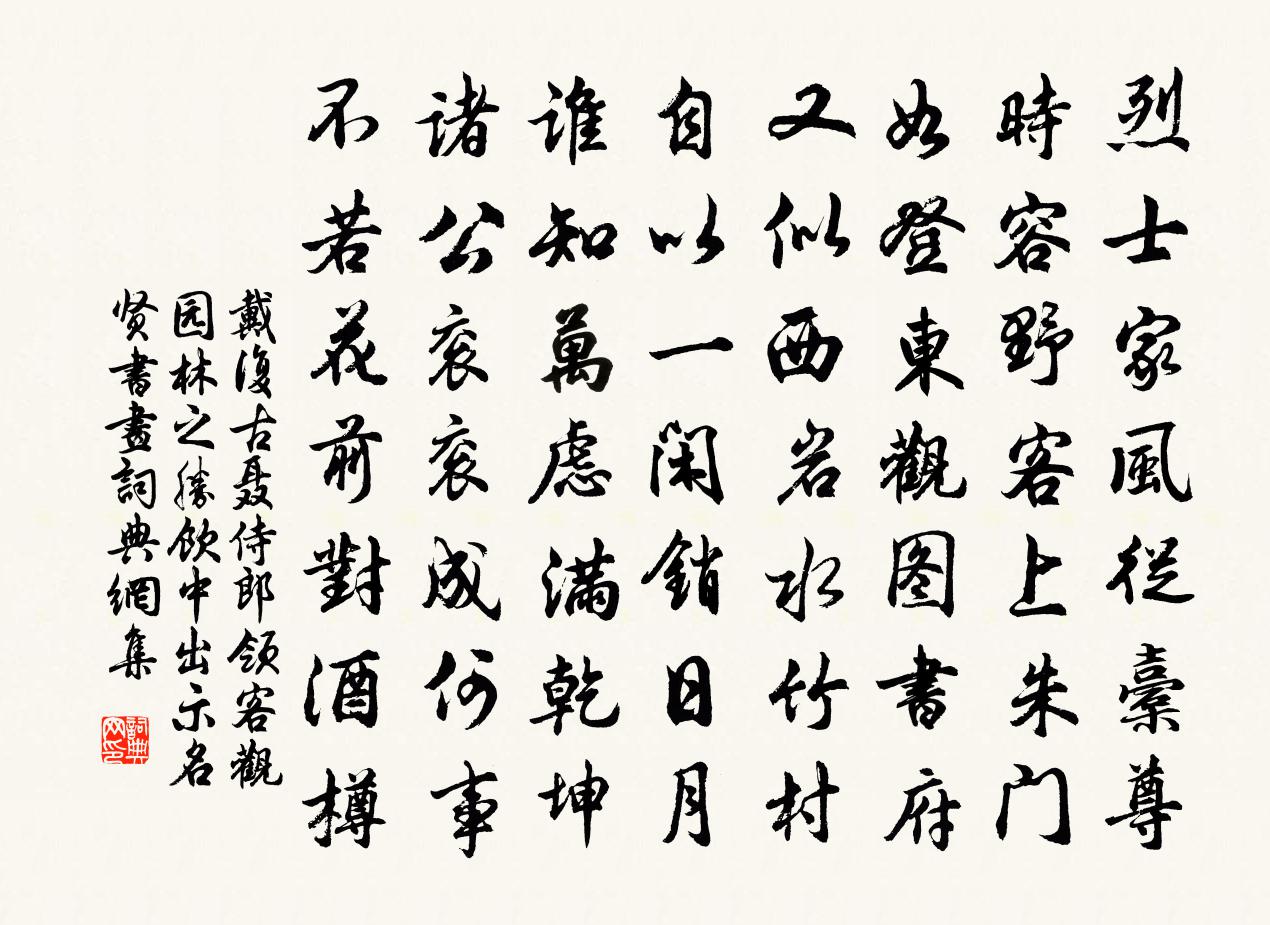 烈士家風從橐尊
時容野客上朱門
如登東觀图書府
又似西岩水竹村
自以一閑銷日月
誰知萬慮滿乾坤
諸公衮衮成何事
不若花前對酒樽
戴復古聂侍郎領客觀
园林之勝飲中出示名
贤書畫詞典網集
詞典网印